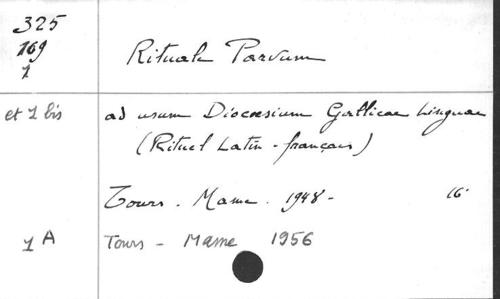 325
169
1
Rituale Parvum
et 1 bis
ad usum Diocesium Gallicae Linguae
(Rituel Latin - français)
Tours. Mame. 1948 - 16°
1 A
Tours - Mame 1956